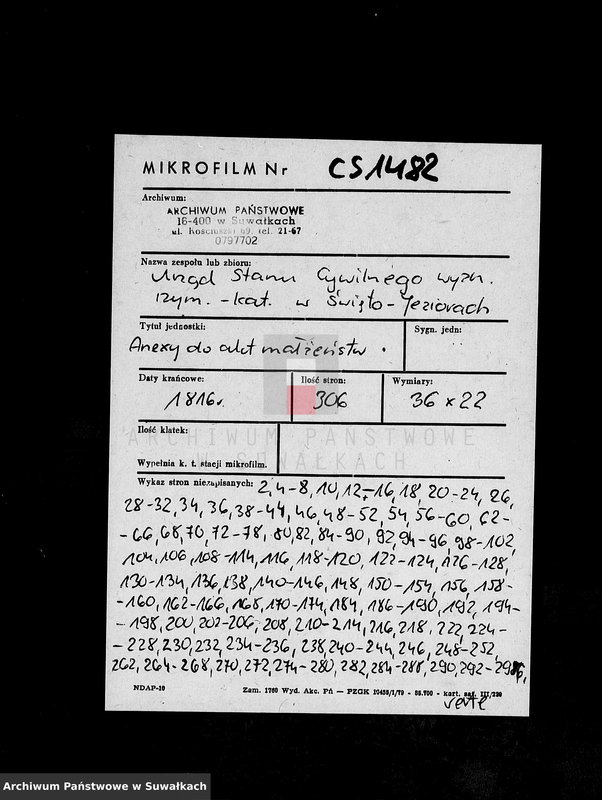 MIKROFILM Nr CS1482
Archiwum:
ARCHIWUM PAŃSTWOWE
16-400 w Suwałkach
ul. Kościuszki 69, tel. 21-67
0797702
Nazwa zespołu lub zbioru:
Urząd Stanu Cywilnego wyzn.
rzym. - kat. w Święto-Jeziorach
Tytuł jednostki: Sygn. jedn:
Anexy do akt małżeństw.
Daty krańcowe: Ilość stron: Wymiary:
1816r. 306 36 x 22
Ilość klatek:
ARCHIWUM PAŃSTWOWE
W SUWAŁKACH
Wypełnia k. t. stacji mikrofilm.
Wykaz stron niezapisanych: 2, 4-8, 10, 12-16, 18, 20-24, 26,
28-32, 34, 36, 38-44, 46, 48-52, 54, 56-60, 62-
-66, 68, 70, 72-78, 80, 82, 84-90, 92, 94-96, 98-102,
104, 106, 108-114, 116, 118-120, 122-124, 126-128,
130-134, 136, 138, 140-146, 148, 150-154, 156, 158-
-160, 162-166, 168, 170-174, 184, 186-190, 192, 194-
-198, 200, 202-206, 208, 210-214, 216, 218, 222, 224-
-228, 230, 232, 234-236, 238, 240-244, 246, 248-252,
262, 264-268, 270, 272, 274-280, 282, 284-288, 290, 292-298,
NDAP-10 Zam. 1760 Wyd. Akc. Pń — PZGK 10458/1/79 - 55.700 - kart. sat. III/220
Archiwum Państwowe w Suwałkach